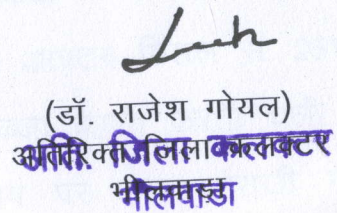 (डॉ. राजेश गोयल)
अतिरिक्त जिला कलक्टर
भीलवाड़ा
अति. जिला कलक्टर
भीलवाडा